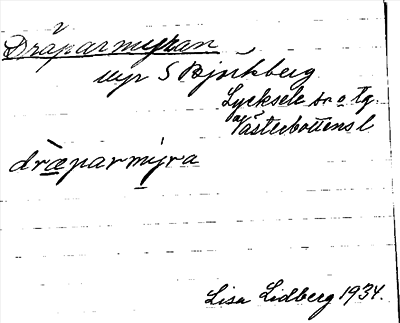 Dråparmyran
myr S Björkberg
Lycksele sn o tg.
Västerbottens l
dræparmýra
Lisa Lidberg 1934.